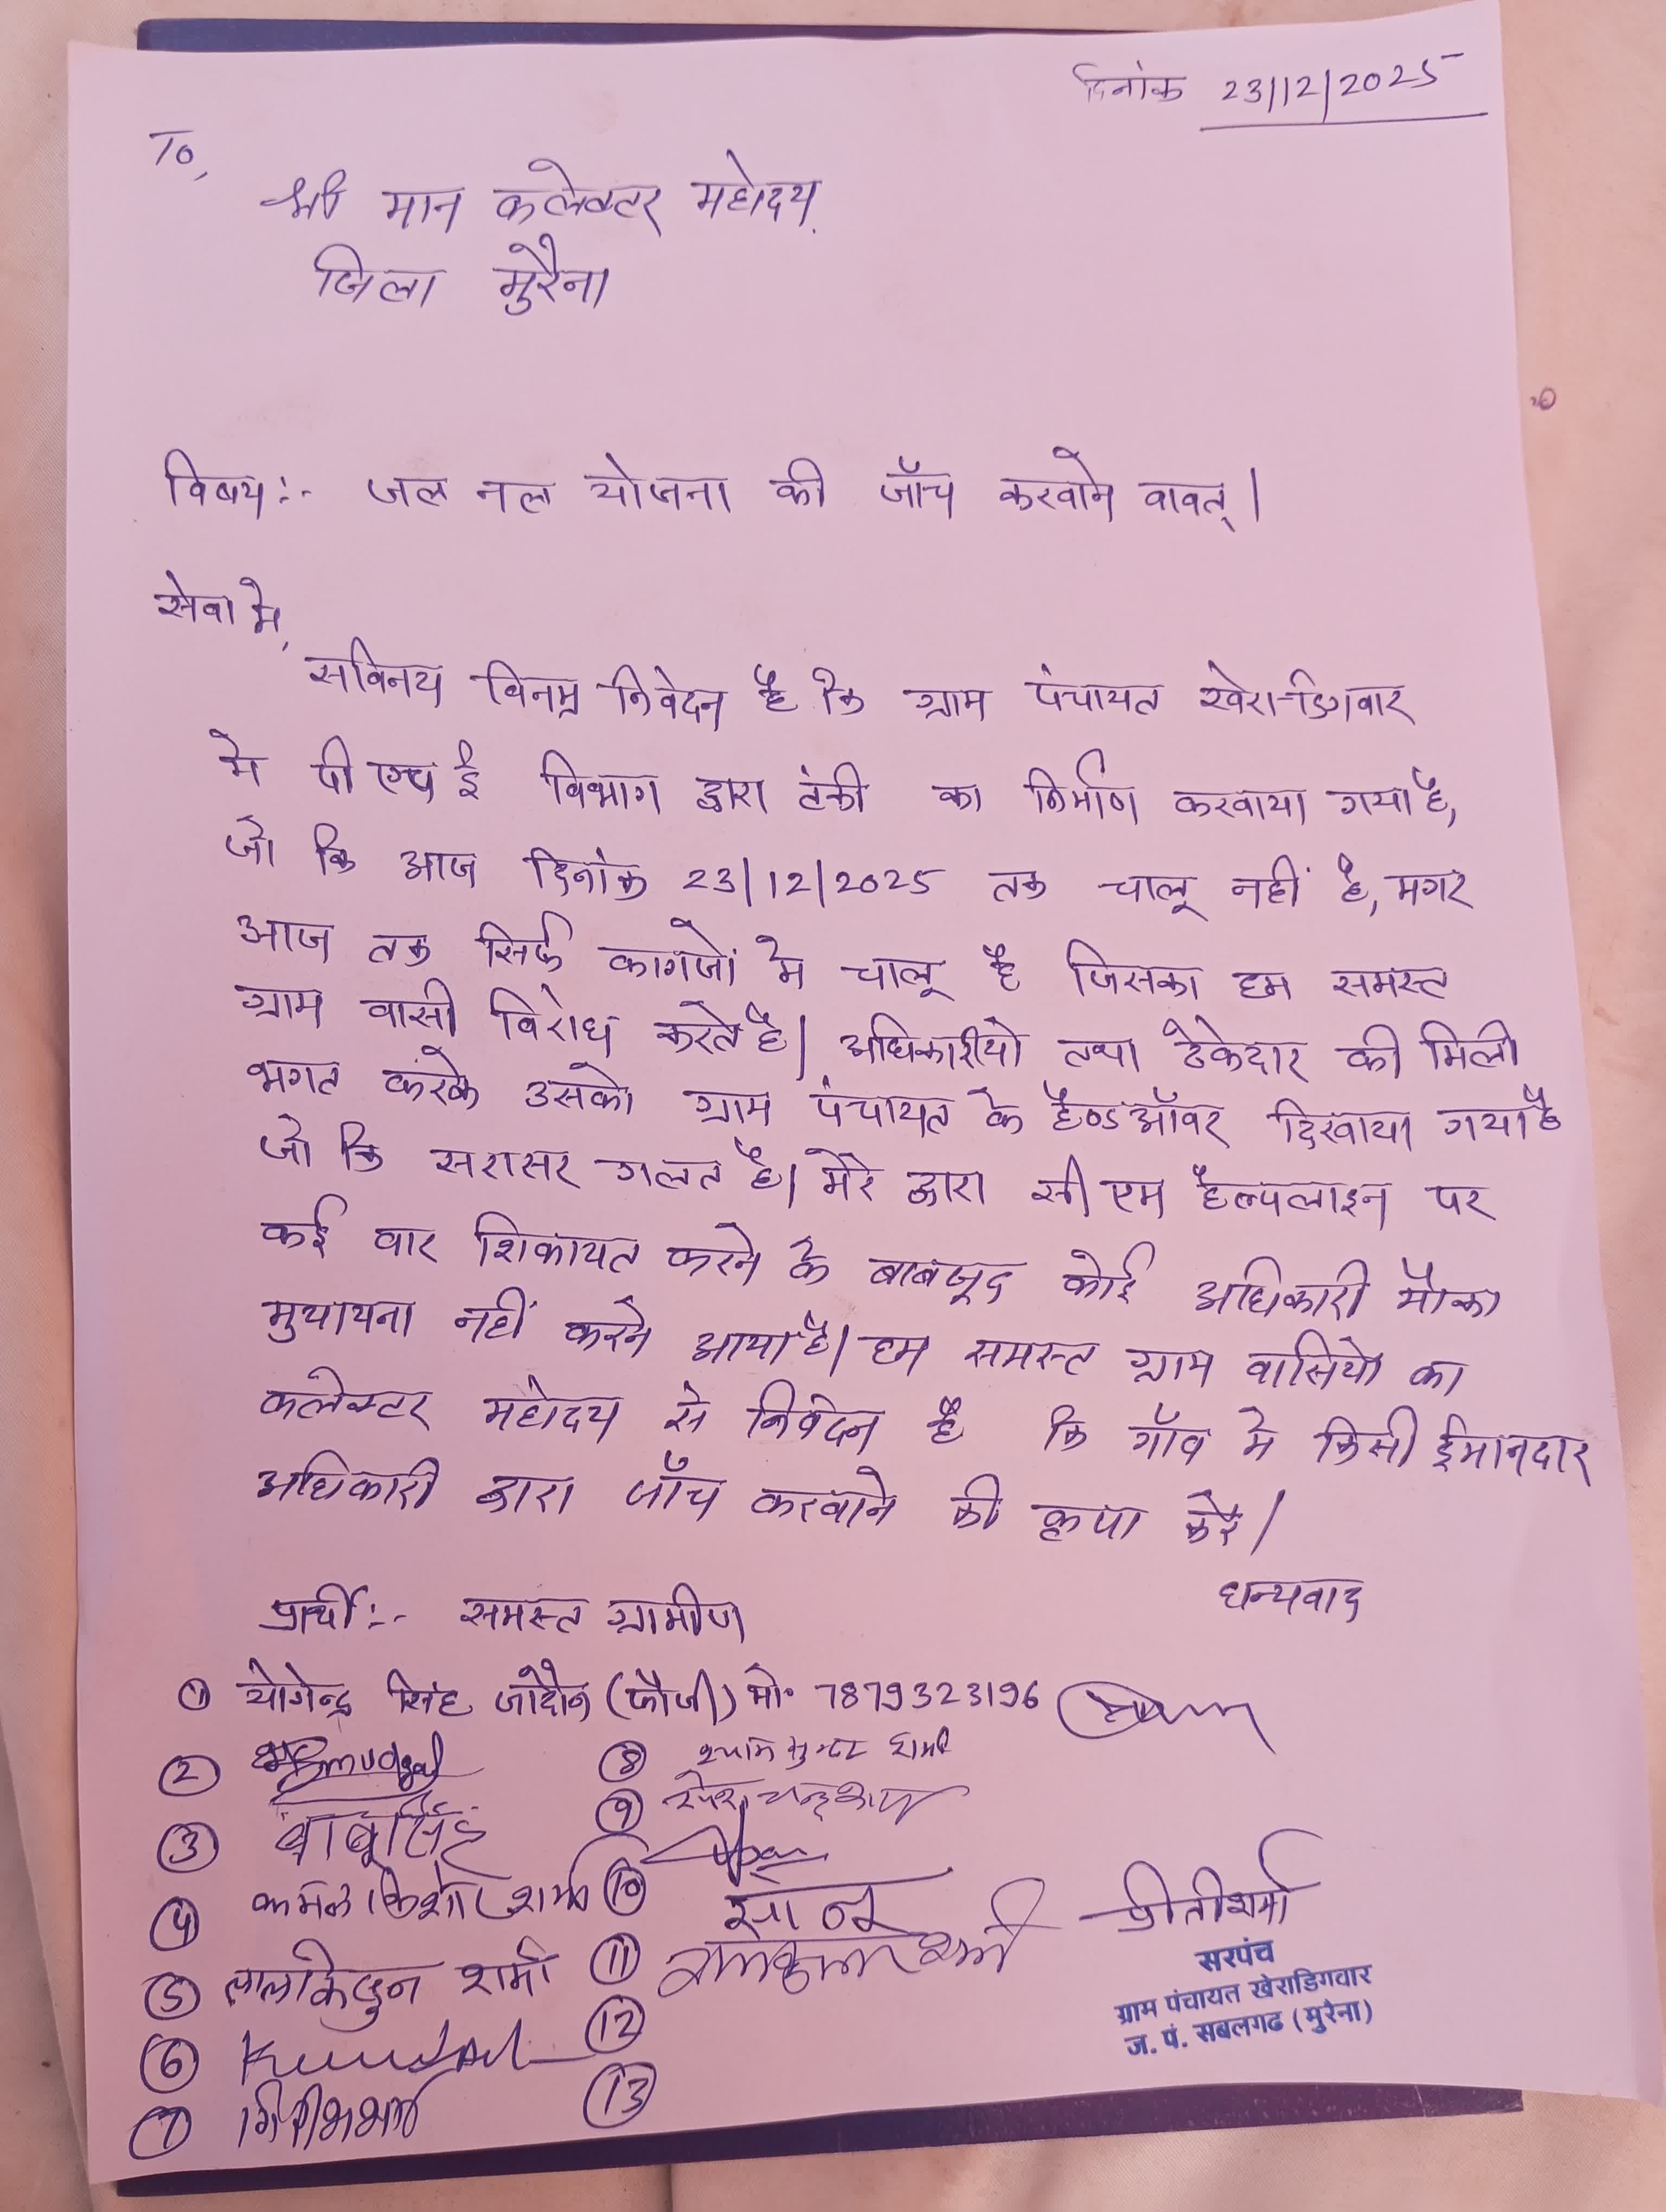 दिनांक 23/12/2025
To,
श्री मान कलेक्टर महोदय
जिला मुरैना
विषय:- जल नल योजना की जाँच करवाने वावत्।
सेवा मे,
सविनय विनम्र निवेदन है कि ग्राम पंचायत खेराडिगवार
मे पी एच ई विभाग द्वारा टंकी का निर्माण करवाया गया है,
जो कि आज दिनांक 23/12/2025 तक चालू नहीं है, मगर
आज तक सिर्फ कागजों मे चालू है जिसका हम समस्त
ग्राम वासी विरोध करते है। अधिकारीयो तथा ठेकेदार की मिली
भगत करके उसको ग्राम पंचायत के हैण्डऑवर दिखाया गया है
जो कि सरासर गलत है। मेरे द्वारा सी एम हैल्पलाइन पर
कई वार शिकायत करने के बाबजूद कोई अधिकारी मौका
मुयायना नहीं करने आया है। हम समस्त ग्राम वासियो का
कलेक्टर महोदय से निवेदन है कि गॉव मे किसी ईमानदार
अधिकारी द्वारा जाँच करवाने की कृपा करे।
धन्यवाद
प्रार्थी:- समस्त ग्रामीण
① योगेन्द्र सिंह जादौन (फौजी) मो॰ 7879323196
②
③ बाबूसिंह
④ कमल किशोर शर्मा
⑤ शर्मा
⑥
⑦
⑧ श्याम सुन्दर शर्मा
⑨
⑩
⑪ शर्मा
⑫
⑬
प्रीती शर्मा
सरपंच
ग्राम पंचायत खेराडिगवार
ज. पं. सबलगढ (मुरैना)